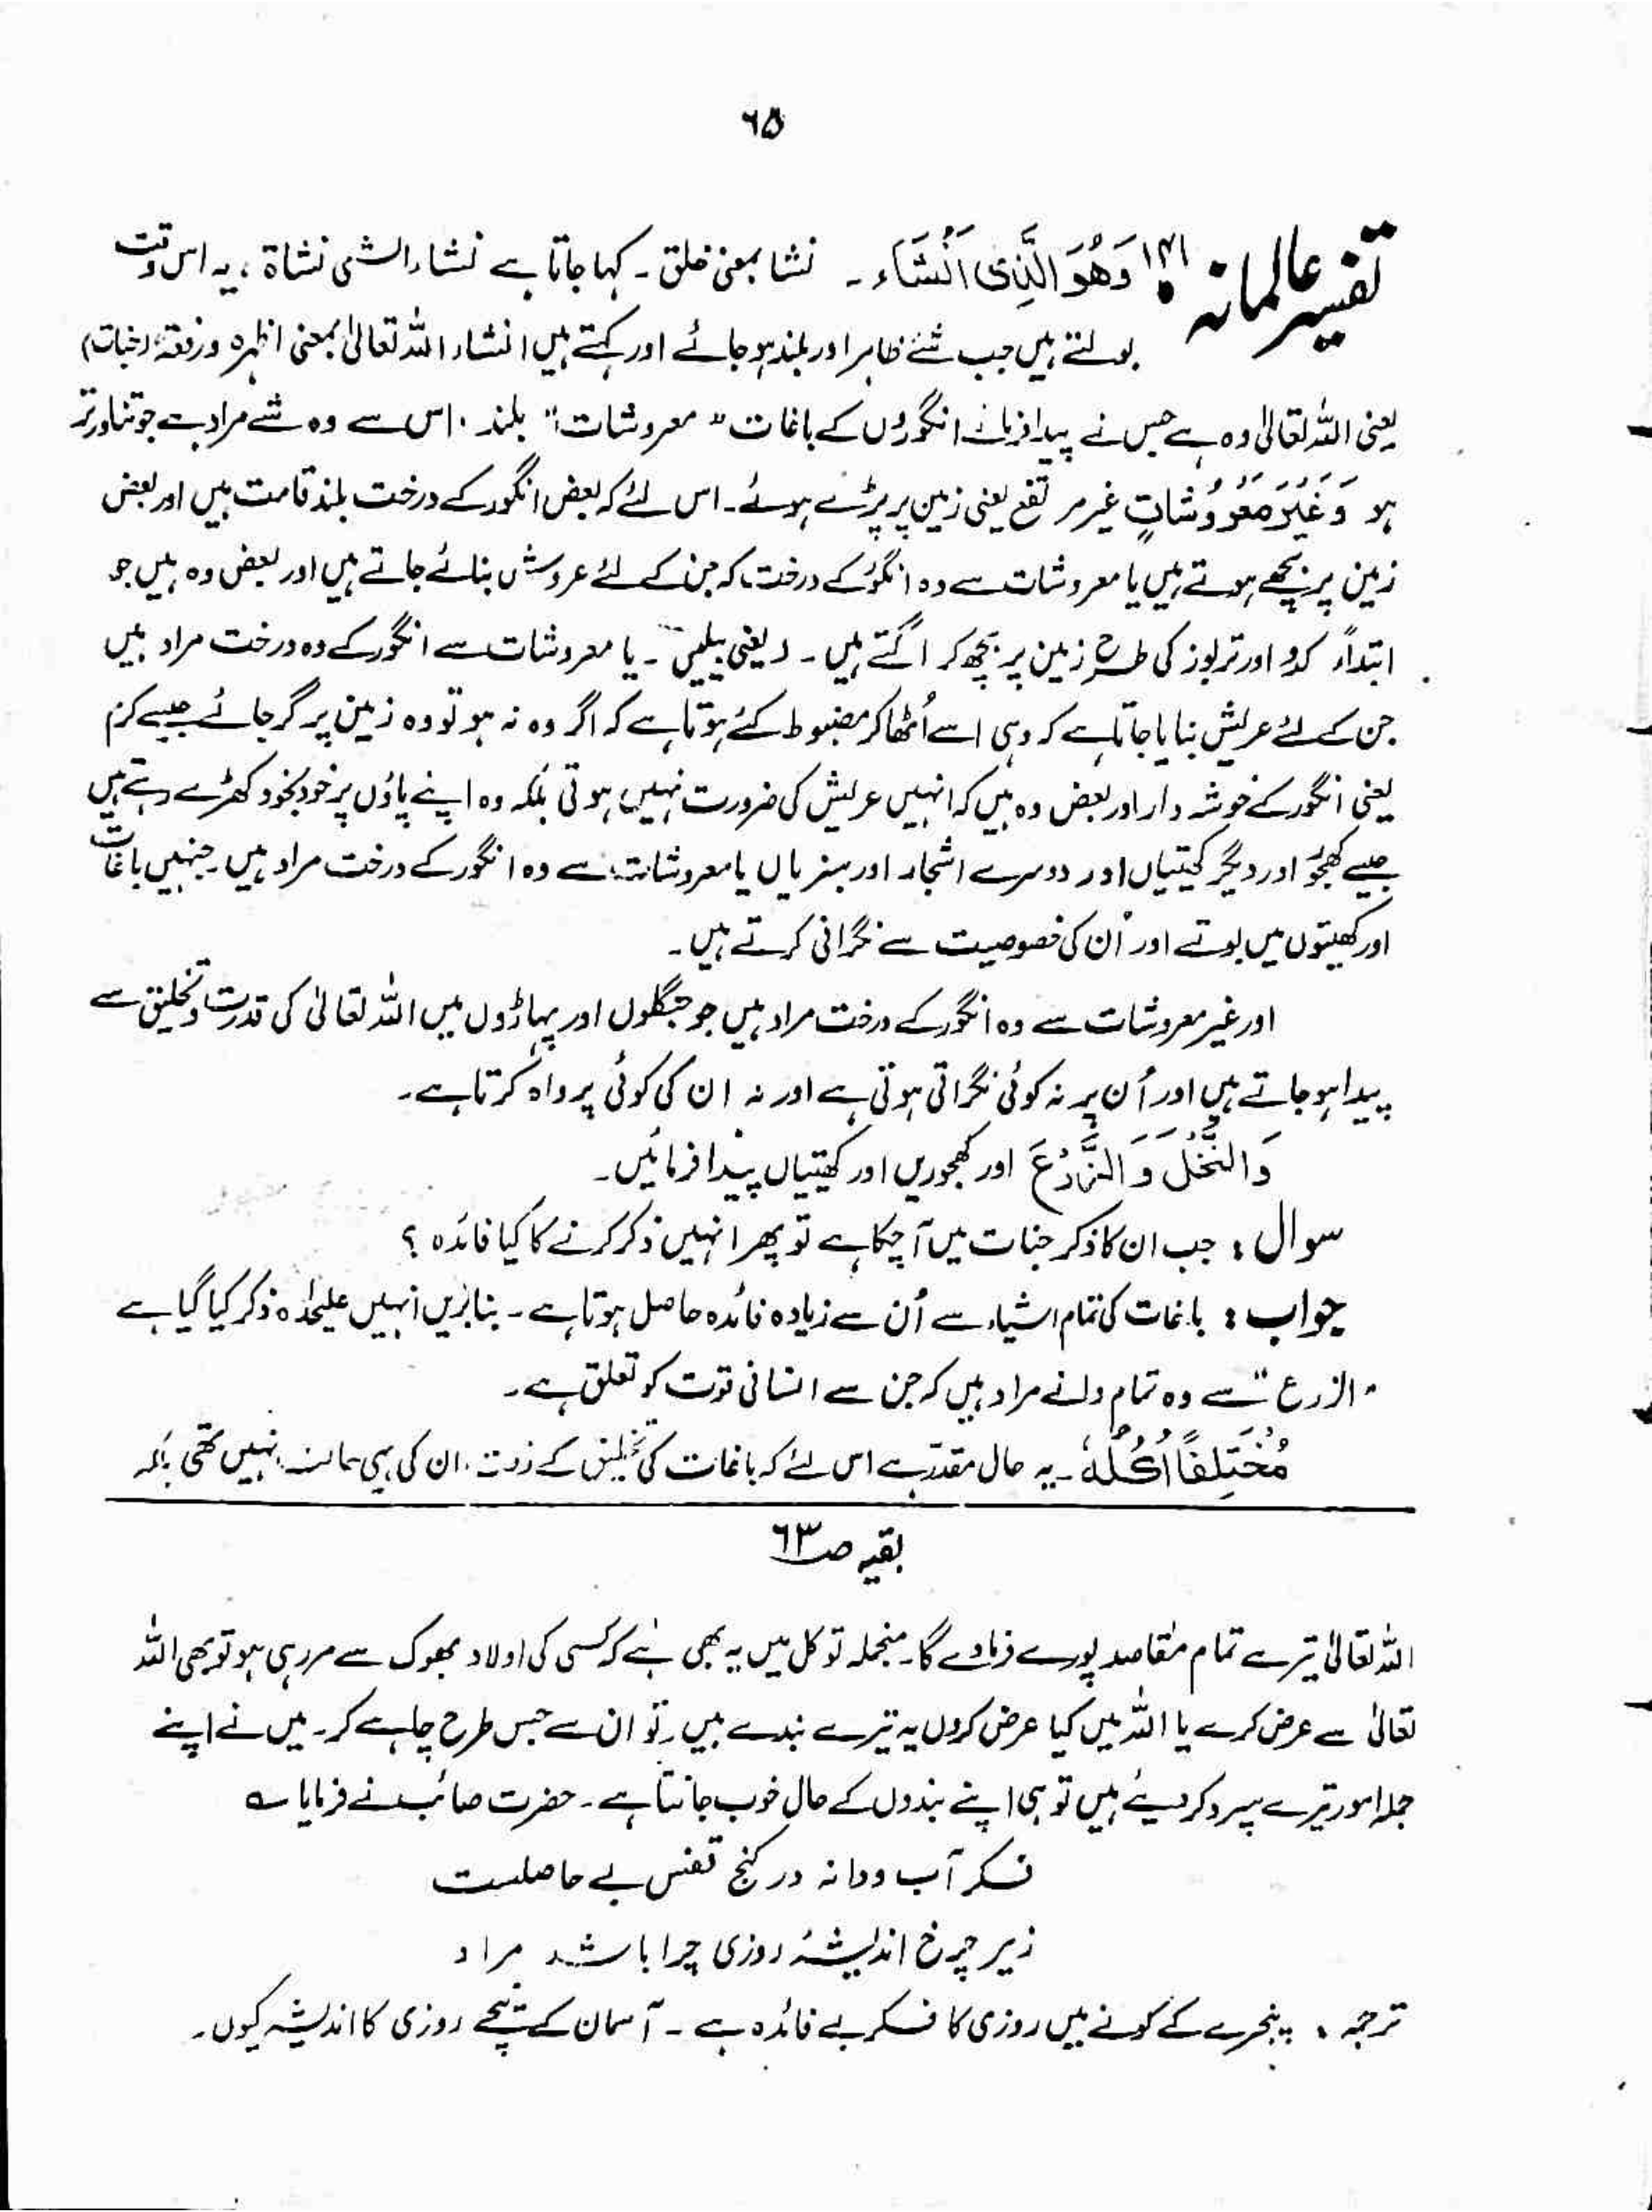 ۶۵
تفسیر عالمانہ ۱۴۱ وَهُوَ الَّذِی اَنْشَاَء ۔ نشا بمعنیٰ خلق ۔ کہا جاتا ہے نشاء الشی نشاۃ ، یہ اس وقت
بولتے ہیں جب شئے ظاہر اور بلند ہو جائے اور کہتے ہیں انشاء اللہ تعالیٰ بمعنی اظہرہ ورفعہٗ (جنات)
یعنی اللہ تعالیٰ وہ ہے جس نے پیدا فرمائے انگوروں کے باغات " معروشات" بلند ۔ اس سے وہ شے مراد ہے جو تناور تر
ہو وَغَیْرَ مَعْرُوْشَاتٍ غیر مر تفع یعنی زمین پر پڑے ہوئے ۔ اس لئے کہ بعض انگور کے درخت بلند قامت ہیں اور بعض
زمین پر بچھے ہوتے ہیں یا معروشات سے وہ انگور کے درخت کہ جن کے لئے عروش بنائے جاتے ہیں اور بعض وہ ہیں جو
ابتداً کدو اور تربوز کی طرح زمین پر بچھ کر اگتے ہیں ۔ (یعنی بیلیں) ۔ یا معروشات سے انگور کے وہ درخت مراد ہیں
جن کے لئے عریش بنایا جاتا ہے کہ وہی اسے اُٹھا کر مضبوط کئے ہوتا ہے کہ اگر وہ نہ ہو تو وہ زمین پر گر جائے جیسے کرم
یعنی انگور کے خوشہ دار اور بعض وہ ہیں کہ انہیں عریش کی ضرورت نہیں ہوتی بلکہ وہ اپنے پاؤں پر خود بخود کھڑے رہتے ہیں
جیسے کھجور اور دیگر کھیتیاں اور دوسرے اشجار اور سبزیاں یا معروشات سے وہ انگور کے درخت مراد ہیں ۔ جنہیں باغات
اور کھیتوں میں بوتے اور اُن کی خصوصیت سے نگرانی کرتے ہیں ۔
اور غیر معروشات سے وہ انگور کے درخت مراد ہیں جو جنگلوں اور پہاڑوں میں اللہ تعالیٰ کی قدرت و تخلیق سے
پیدا ہو جاتے ہیں اور اُن پر نہ کوئی نگراتی ہوتی ہے اور نہ ان کی کوئی پرواہ کرتا ہے ۔
وَالنَّخْلَ وَالزَّرْعَ اور کھجوریں اور کھیتیاں پیدا فرمائیں ۔
سوال : جب ان کا ذکر جنات میں آ چکا ہے تو پھر انہیں ذکر کرنے کا کیا فائدہ ؟
جواب : باغات کی تمام اشیاء سے اُن سے زیادہ فائدہ حاصل ہوتا ہے ۔ بنابریں انہیں علیحٰدہ ذکر کیا گیا ہے
" الزرع " سے وہ تمام دانے مراد ہیں کہ جن سے انسانی قوت کو تعلق ہے ۔
مُخْتَلِفًا اُکُلُهٗ ۔ یہ حال مقدر ہے اس لئے کہ باغات کی تخلیق کے وقت ان کی یہی حالت نہیں تھی بلکہ
بقیہ ص ۶۳
اللہ تعالیٰ تیرے تمام مقاصد پورے فرمادے گا ۔ منجملہ توکل میں یہ بھی ہے کہ کسی کی اولاد بھوک سے مر رہی ہو تو بھی اللہ
تعالیٰ سے عرض کرے یا اللہ میں کیا عرض کروں یہ تیرے بندے ہیں ۔ تو ان سے جس طرح چاہے کر ۔ میں نے اپنے
جملہ امور تیرے سپرد کر دیئے ہیں تو ہی اپنے بندوں کے حال خوب جانتا ہے ۔ حضرت صائب نے فرمایا ؎
فکر آب ودانہ در کنج قفس بے حاصلست
زیر چرخ اندیشۂ روزی چرا باشد مراد
ترجمہ : پنجرے کے کونے میں روزی کا فکر بے فائدہ ہے ۔ آسمان کے نیچے روزی کا اندیشہ کیوں ۔